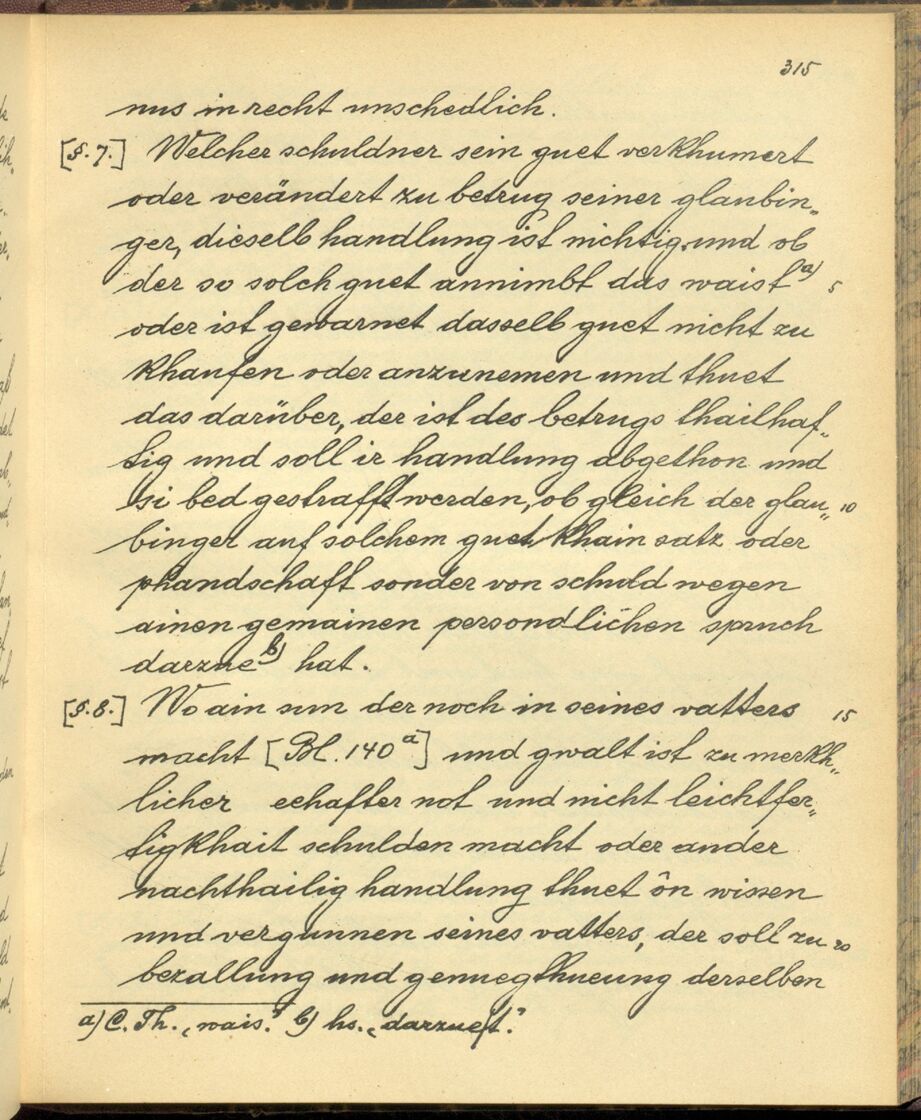 315
nus in recht unschedlich.
[§. 7.] Welcher schuldner sein guet verkhumert
oder verändert zu betrug seiner glaubin„
ger, dieselb handlung ist nichtig und ob
der so solch guet annimbt das waist a) 5
oder ist gewarnet dasselb guet nicht zu
khaufen oder anzunemen und thuet
das darüber, der ist des betrugs thailhaf„
tig und soll ir handlung abgethon und
si bed gestrafft werden, ob gleich der glau„ 10
binger auf solchem guet khain satz oder
phandschaft sonder von schuld wegen
ainen gemainen persondlichen spruch
darzue b) hat.
[§. 8.] Wo ain sun der noch in seines vatters 15
macht [Bl. 140a] und gwalt ist zu merkh„
licher echafter not und nicht leichtfer„
tigkhait schulden macht oder ander
nachthailig handlung thuet ôn wissen
und vergunnen seines vatters, der soll zu 20
bezallung und genuegthueung derselben
a) C. Th. „wais.“ b) hs. „darzueft.“